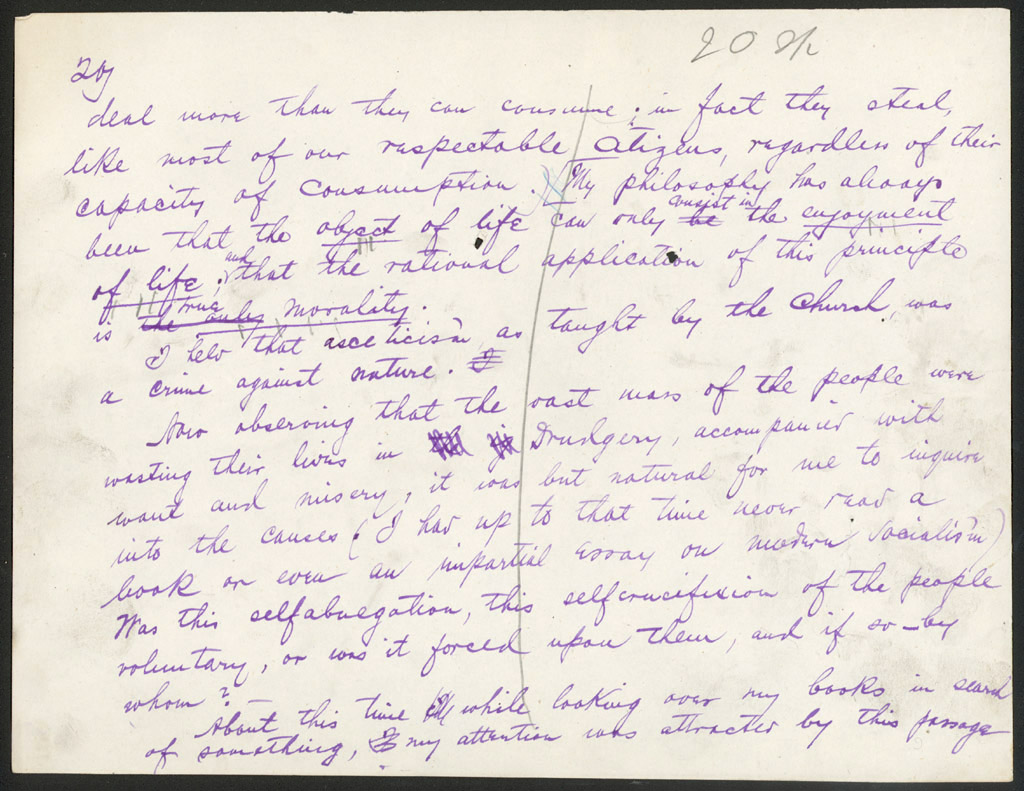 20 1/2
20)
deal more than they can consume; in fact they steal,
like most of our respectable Citizens, regardless of their
capacity of consumption. My philosophy has always
been that the object of life can only be consist in the enjoyment
of life; and that the rational application of this principle
is the only true morality.
I held that asceticism, as taught by the Church, was
a crime against nature. I
Now observing that the vast mass of the people were
wasting their lives in Drudgery, accompanied with
want and misery, it was but natural for me to inquire
into the causes (I had up to that time never read a
book or even an impartial essay on modern Socialism)
Was this selfabnegation, this selfcrucifixion of the people
voluntary, or was it forced upon them, and if so – by
whom?
About this time while looking over my books in search
of something, my attention was attracted by this passage